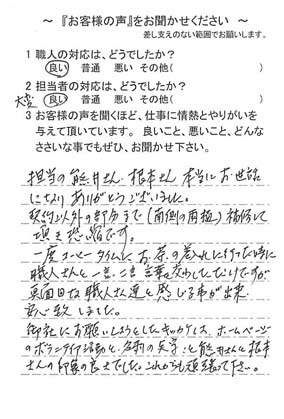 ～ 『お客様の声』をお聞かせください ～
差し支えのない範囲でお願いします。
1 職人の対応は、どうでしたか？
良い 普通 悪い その他( )
2 担当者の対応は、どうでしたか？
大変 良い 普通 悪い その他( )
3 お客様の声を聞くほど、仕事に情熱とやりがいを
与えて頂いています。 良いこと、悪いこと、どんな
ささいな事でもぜひ、お聞かせ下さい。
担当の熊井さん、根本さん 本当にお世話
になり ありがとうございました。
契約以外の部分まで(南側の雨樋)補修して
頂き恐縮です。
一度コーヒータイムにお茶の差入れに行った時に
職人さんと一言二言言葉を交わしただけですが
真面目な職人さん達と感じる事が出来
安心致しました。
御社にお願いしようとしたキッカケは、ホームページ
のボランティア活動と、名前の 、と熊井さんと根本
さんの印象の良さでした。これからも頑張って下さい。